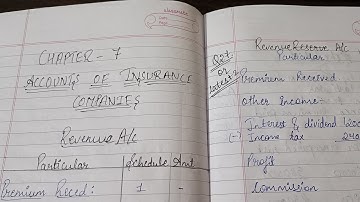 CHAPTER - 7
ACCOUNTS OF INSURANCE
COMPANIES
Revenue A/c
Particular Schedule Amt
Premium Recd: 1 -
Revenue Reserve A/c
Particular
Premium Received
Other Income:-
Interest & dividend 200
(-) Income tax 240
Profit
Commission